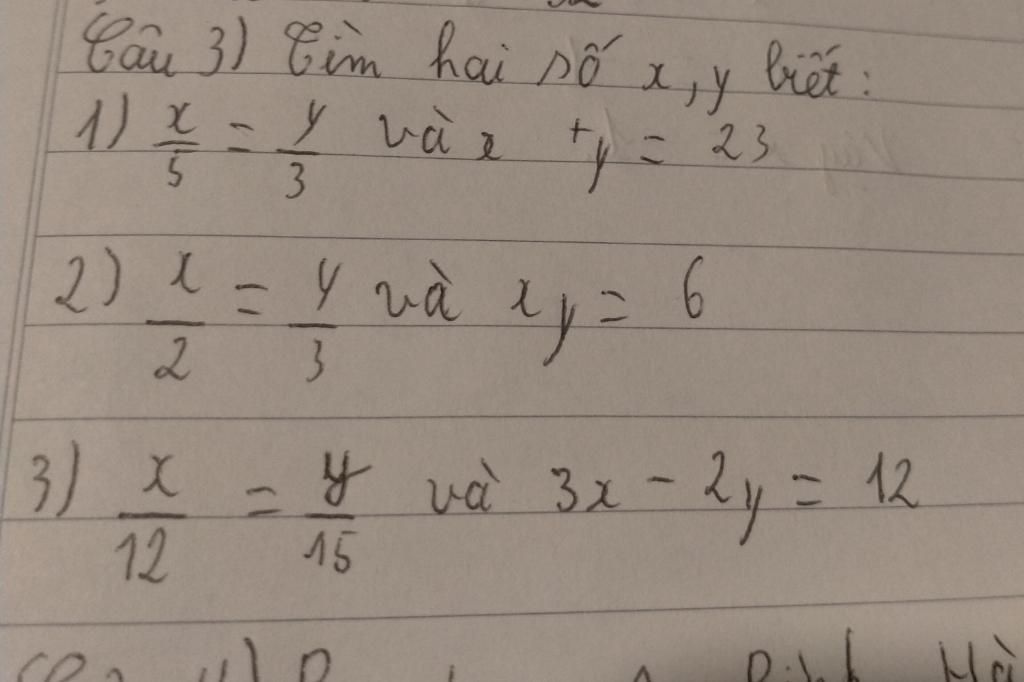 Câu 3) Tìm hai số x, y biết:
1) x/5 = y/3 và x + y = 23
2) x/2 = y/3 và xy = 6
3) x/12 = y/15 và 3x - 2y = 12